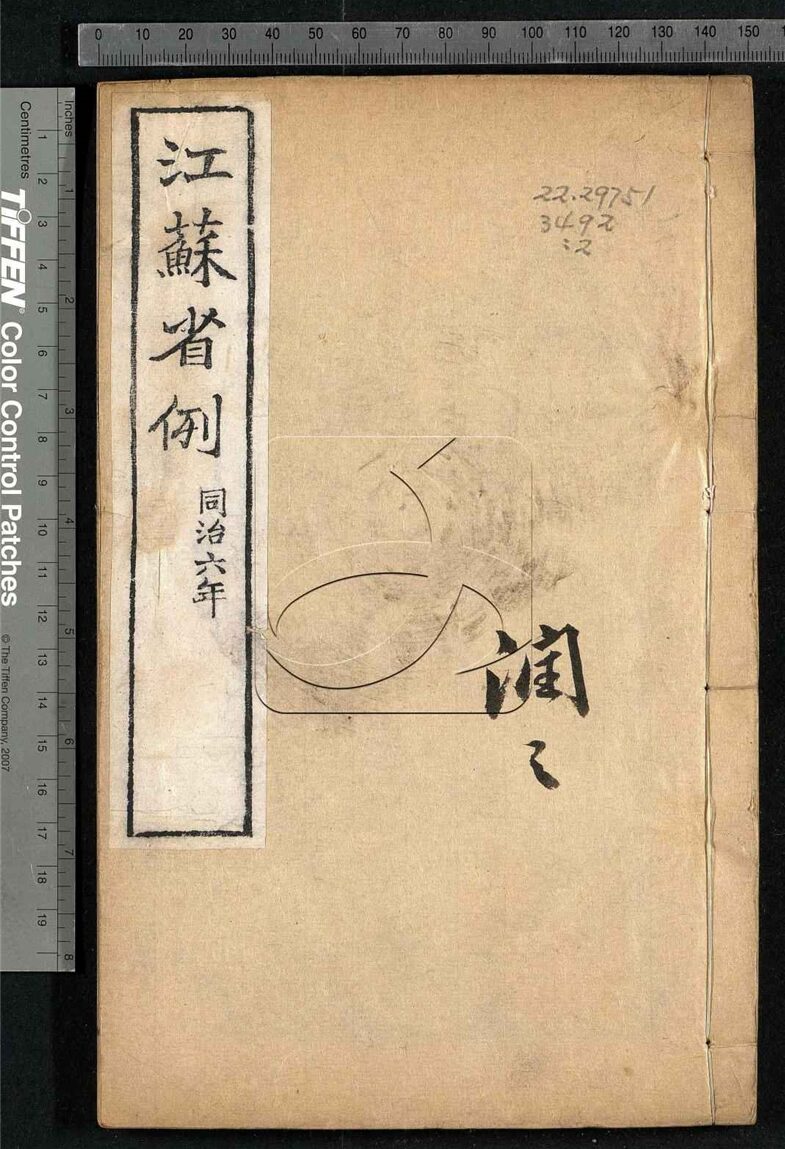 0 10 20 30 40 50 60 70 80 90 100 110 120 130 140 150
江蘇省例
同治六年
22.29751
3492
:2
潤
Inches
1 2 3 4 5 6 7 8
Centimetres
1 2 3 4 5 6 7 8 9 10 11 12 13 14 15 16 17 18 19
TIFFEN® Color Control Patches
© The Tiffen Company, 2007